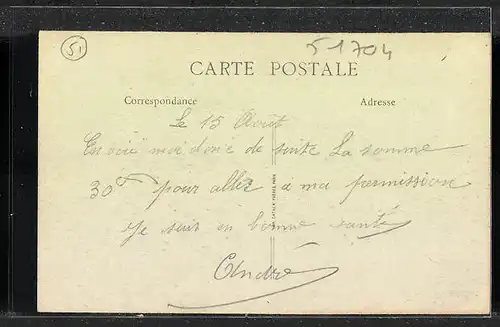 51
51704
CARTE POSTALE
Correspondance
Adresse
Le 15 Août
Envoié moi donc de suite La somme
30 pour aller a ma permission
Je suis en bonne santé
André